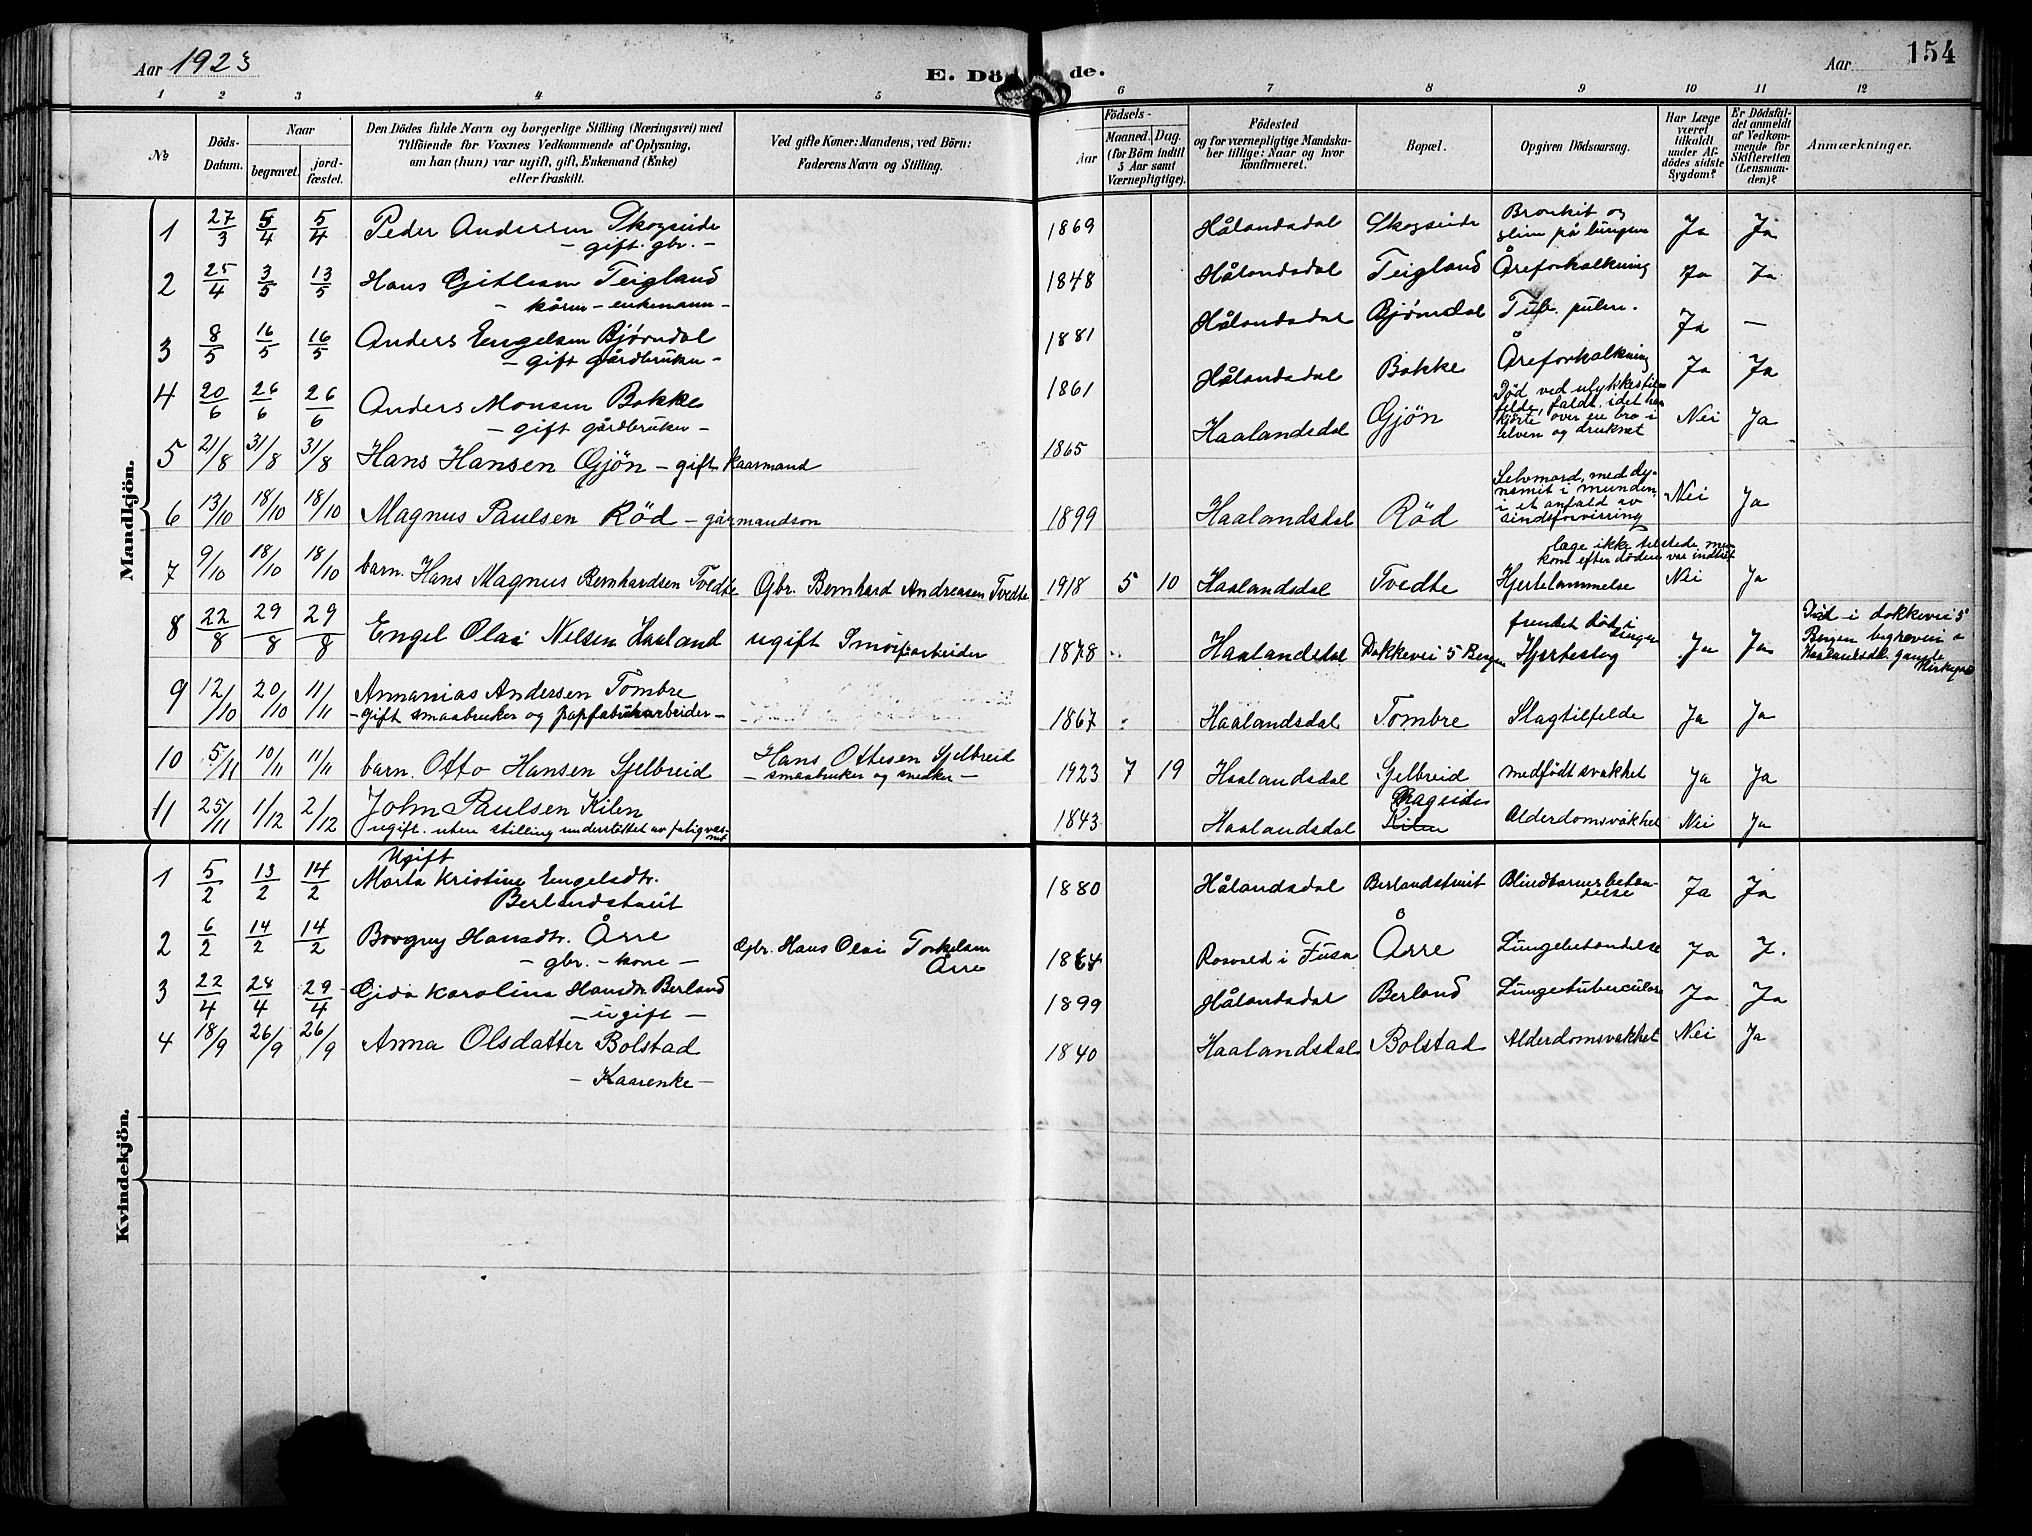 Aar 1923
E. Döde.
Aar
154
1 2 3 4 5 6 7 8 9 10 11 12
№
Döds-Datum.
Naar
begravet.
jordfæstet.
Den Dödes fulde Navn og borgerlige Stilling (Næringsvei) med
Tilföiende for Voxnes Vedkommende af Oplysning,
om han (hun) var ugift, gift, Enkemand (Enke)
eller fraskilt.
Ved gifte Koner: Mandens, ved Börn:
Faderens Navn og Stilling.
Födsels-
Aar
Maaned. Dag.
(for Börn indtil
5 Aar samt
Værnepligtige).
Födested
og for værnepligtige Mandska-
ber tillige: Naar og hvor
konfirmeret.
Bopæl.
Opgiven Dödsaarsag.
Har Læge
været
tilkaldt
under Af-
dödes sidste
Sygdom?
Er Dödsfal-
det anmeldt
af Vedkom-
mende for
Skifteretten
(Lensman-
den)?
Anmærkninger.
Mandkjön.
1 27/3 5/4 5/4 Peder Andersen Skogseide 1869 Hålandsdal Skogseide Bronkit og
slim på lungene Ja Ja
- gift. gbr. -
2 25/4 3/5 13/5 Hans Gitlesen Teigland 1848 Hålandsdal Teigland Åreforkalkning Ja Ja
- kårm - enkemann -
3 8/5 16/5 16/5 Anders Engelsen Bjørndal 1881 Hålandsdal Bjørndal Tub. pulm. Ja -
- gift gårdbruker -
4 20/6 26/6 26/6 Anders Monsen Bakke 1861 Hålandsdal Bakke Åreforkalkning Ja Ja
- gift gårdbruker -
5 21/8 31/8 31/8 Hans Hansen Gjön - gift kaarmand 1865 Haalandsdal Gjön Död ved ulykkestil-
felde, faldt, idet han
kjörte over en bro i
elven og druknet Nei Ja
6 13/10 18/10 18/10 Magnus Paulsen Röd - gårmandsön 1899 Haalandsdal Röd Selvmord, med dy-
namit i munden,
i et anfald av
sindsforvirring Nei Ja
7 9/10 18/10 18/10 barn. Hans Magnus Bernhardsen Tvedte Gbr. Bernhard Andreasen Tvedte 1918 5 10 Haalandsdal Tvedte læge ikke tilstede, men
kom efter döden var indtråt
Hjertelammelse Nei Ja
8 22/8 29/8 29/8 Engel Olai Nilsen Haaland ugift 1878 Haalandsdal Dokkevei 5 Bergen fundet död i
sengen
Hjerteslag Ja Ja Död i dokkevei 5
Bergen
9 12/10 20/10 11/11 Annanias Andersen Tombre 1867 Haalandsdal Tombre Slagtilfelde Ja Ja
- gift smaabruker og papfabrikarbeider -
10 5/11 10/11 11/11 barn. Otto Hansen Gjelbreid Hans Ottesen Gjelbreid
- smaabruker og snedker - 1923 7 19 Haalandsdal Gjelbreid medfödt svakhet Ja Ja
11 25/11 1/12 2/12 John Paulsen Kilen 1843 Haalandsdal Kilen Alderdomsvakhet Nei Ja
ugift. uten stilling understöttet av fatigvæs-
net
Kvindekjön.
Ugift
1 5/2 13/2 14/2 Marta Kristine Engelsdtr.
Berlandstveit 1880 Hålandsdal Berlandstveit Blindtarmsbeten-
delse Ja Ja
2 6/2 14/2 14/2 Hansdtr. Årre Gbr. Hans Olai Torkelsen
Årre 1864 i Fusa Årre Lungebetendelse Ja J.
- gbr. - kone -
3 22/4 28/4 29/4 Gida Karolina Hansdtr Berland 1899 Hålandsdal Berland Lungetuberculose Ja Ja
- ugift -
4 18/9 26/9 26/9 Anna Olsdatter Bolstad 1840 Haalandsdal Bolstad Alderdomsvakhet Nei Ja
- Kaarenke -